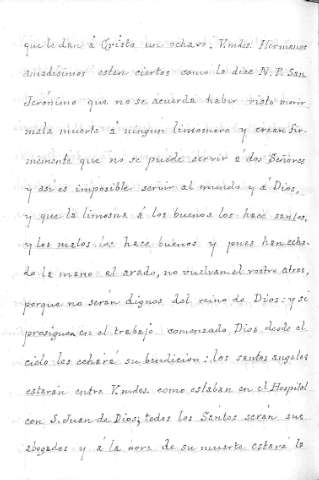 que le dan á Cristo un ochavo; V.mdes. Hermanos
amadísimos esten ciertos como lo dice N. P. San
Jerónimo que no se acuerda haber visto morir
mala muerte á ningún limosnero y crean fir-
memente que no se puede servir á dos Señores
y así es imposible servir al mundo y á Dios,
y que la limosna á los buenos los hace santos,
y los malos los hace buenos y pues han echa-
do la mano al arado, no vuelvan el rostro atras,
porque no serán dignos del reino de Dios: y si
prosiguen en el trabajo comenzado, Dios desde el
cielo les echará su bendicion: los santos angeles
estarán entre V.mdes. como estaban en el Hospital
con S. Juan de Dios; todos los Santos serán sus
abogados y á la hora de su muerte estará la